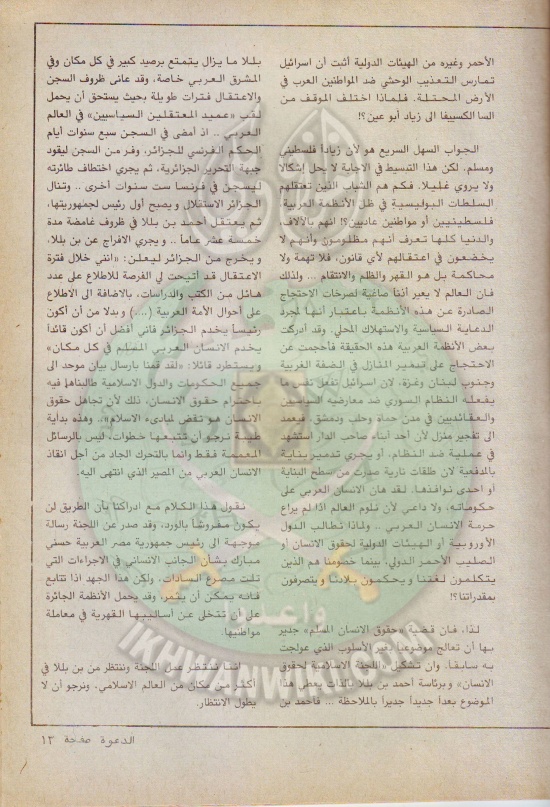 الأحمر وغيره من الهيئات الدولية أثبت أن اسرائيل
تمارس التعذيب الوحشي ضد المواطنين العرب في
الأرض المحتلة. فلماذا اختلف الموقف من
السا الكسيفا الى زياد أبو عين؟!
الجواب السهل السريع هو لأن زياداً فلسطيني
ومسلم. لكن هذا التبسيط في الاجابة لا يحل إشكالا
ولا يروي غليلا. فكم هم الشباب الذين تعتقلهم
السلطات البوليسية في ظل الأنظمة العربية،
فلسطينيين أو مواطنين عاديين؟! انهم بالآلاف،
والدنيا كلها تعرف أنهم مظلومون وأنهم لا
يخضعون في اعتقالهم لأي قانون، فلا تهمة ولا
محاكمة بل هو القهر والظلم والانتقام ... ولذلك
فان العالم لا يعير أذناً صاغية لصرخات الاحتجاج
الصادرة عن هذه الأنظمة باعتبار أنها لمجرد
الدعاية السياسية والاستهلاك المحلي. وقد أدركت
بعض الأنظمة العربية هذه الحقيقة فأحجمت عن
الاحتجاج على تدمير المنازل في الضفة الغربية
وجنوب لبنان وغزة، لان اسرائيل تفعل نفس ما
يفعله النظام السوري ضد معارضيه السياسيين
والعقائديين في مدن حماة وحلب ودمشق. فيعمد
الى تفجير منزل لأن أحد أبناء صاحب الدار استشهد
في عملية ضد النظام، أو يجري تدمير بناية
بالمدفعية لان طلقات نارية صدرت من سطح البناية
أو احدى نوافذها. لقد هان الانسان العربي على
حكوماته، ولا داعي لأن نلوم العالم اذا لم يراع
حرمة الانسان العربي .. ولماذا نطالب الدول
الأوروبية أو الهيئات الدولية لحقوق الانسان أو
الصليب الأحمر الدولي، بينما خصومنا هم الذين
يتكلمون لغتنا ويحكمون بلادنا ويتصرفون
بمقدراتنا؟!
لذا، فان قضية «حقوق الانسان المسلم» جدير
بها أن تعالج موضوعياً بغير الأسلوب الذي عولجت
به سابقا. وان تشكيل «اللجنة الاسلامية لحقوق
الانسان» وبرئاسة أحمد بن بللا بالذات يعطي هذا
الموضوع بعداً جديداً جديراً بالملاحظة .. فأحمد بن
بللا ما يزال يتمتع برصيد كبير في كل مكان وفي
المشرق العربي خاصة، وقد عانى ظروف السجن
والاعتقال فترات طويلة بحيث يستحق أن يحمل
لقب «عميد المعتقلين السياسيين» في العالم
العربي .. اذ امضى في السجن سبع سنوات أيام
الحكم الفرنسي للجزائر، وفر من السجن ليقود
جبهة التحرير الجزائرية، ثم يجري اختطاف طائرته
ليسجن في فرنسا ست سنوات أخرى .. وتنال
الجزائر الاستقلال ويصبح أول رئيس لجمهوريتها،
ثم يعتقل أحمد بن بللا في ظروف غامضة مدة
خمسة عشر عاما .. ويجري الافراج عن بن بللا،
ويخرج من الجزائر ليعلن: «انني خلال فترة
الاعتقال قد أتيحت لي الفرصة للاطلاع على عدد
هائل من الكتب والدراسات، بالاضافة الى الاطلاع
على أحوال الأمة العربية (...) وبدلا من أن أكون
رئيساً يخدم الجزائر فاني أفضل أن أكون قائداً
يخدم الانسان العربي المسلم في كل مكان»
ويستطرد قائلا: «لقد قمنا بارسال بيان موحد الى
جميع الحكومات والدول الاسلامية طالبناهم فيه
باحترام حقوق الانسان، ذلك لأن تجاهل حقوق
الانسان هو نقض لمبادىء الاسلام».. وهذه بداية
طيبة نرجو أن تتبعها خطوات، ليس بالرسائل
المعممة فقط وانما بالتحرك الجاد من أجل انقاذ
الانسان العربي من المصير الذي انتهى اليه.
نقول هذا الكلام مع ادراكنا بأن الطريق لن
يكون مفروشاً بالورد، وقد صدر عن اللجنة رسالة
موجهة الى رئيس جمهورية مصر العربية حسني
مبارك بشأن الجانب الانساني في الاجراءات التي
تلت مصرع السادات. ولكن هذا الجهد اذا تتابع
فانه يمكن أن يثمر وقد يحمل الأنظمة الجائرة
على أن تتخلى عن أساليبها القهرية في معاملة
مواطنيها.
اننا ننتظر عمل اللجنة وننتظر من بن بللا في
أكثر من مكان من العالم الاسلامي، ونرجو أن لا
يطول الانتظار.
الدعوة صفحة ١٣
وأعدوا
IKHWANWIKI.COM